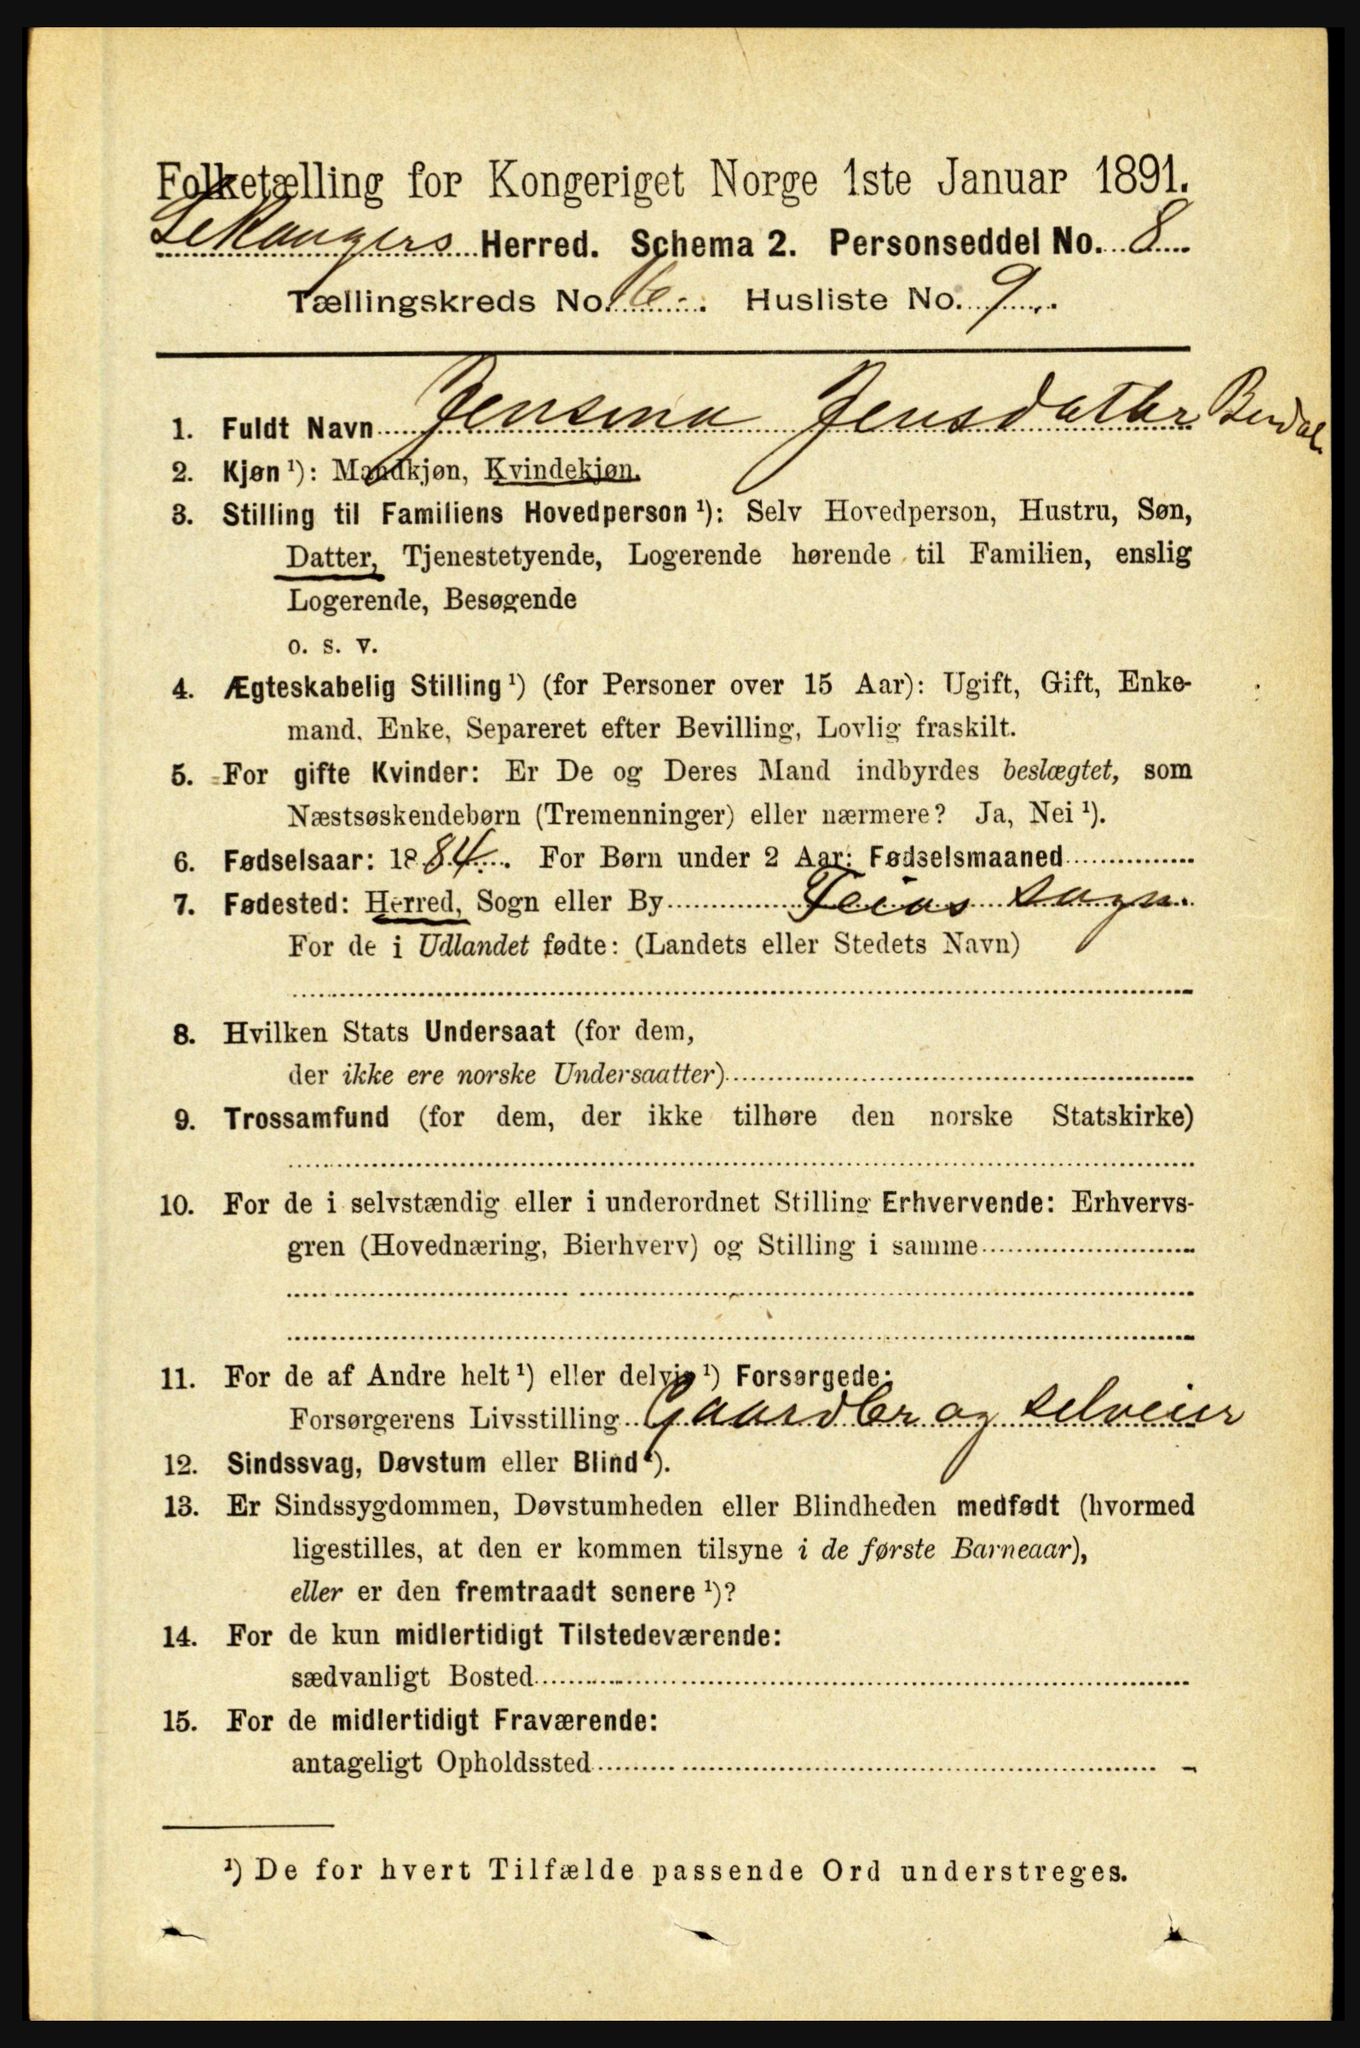 Folketælling for Kongeriget Norge 1ste Januar 1891.
Lekangers Herred. Schema 2. Personseddel No. 8
Tællingskreds No. 6. Husliste No. 9.
1. Fuldt Navn Jensina Jensdatter Berdal
2. Kjøn ¹): Mandkjøn, Kvindekjøn.
3. Stilling til Familiens Hovedperson ¹): Selv Hovedperson, Hustru, Søn,
Datter, Tjenestetyende, Logerende hørende til Familien, enslig
Logerende, Besøgende
o. s. v.
4. Ægteskabelig Stilling ¹) (for Personer over 15 Aar): Ugift, Gift, Enke-
mand, Enke, Separeret efter Bevilling, Lovlig fraskilt.
5. For gifte Kvinder: Er De og Deres Mand indbyrdes beslægtet, som
Næstsøskendebørn (Tremenninger) eller nærmere? Ja, Nei ¹).
6. Fødselsaar: 1884. For Børn under 2 Aar: Fødselsmaaned
7. Fødested: Herred, Sogn eller By Feios sogn.
For de i Udlandet fødte: (Landets eller Stedets Navn)
8. Hvilken Stats Undersaat (for dem,
der ikke ere norske Undersaatter)
9. Trossamfund (for dem, der ikke tilhøre den norske Statskirke)
10. For de i selvstændig eller i underordnet Stilling Erhvervende: Erhvervs-
gren (Hovednæring, Bierhverv) og Stilling i samme
11. For de af Andre helt ¹) eller delvis ¹) Forsørgede:
Forsørgerens Livsstilling Gaardbr og selveier
12. Sindssvag, Døvstum eller Blind ¹).
13. Er Sindssygdommen, Døvstumheden eller Blindheden medfødt (hvormed
ligestilles, at den er kommen tilsyne i de første Barneaar),
eller er den fremtraadt senere ¹)?
14. For de kun midlertidigt Tilstedeværende:
sædvanligt Bosted
15. For de midlertidigt Fraværende:
antageligt Opholdssted
¹) De for hvert Tilfælde passende Ord understreges.